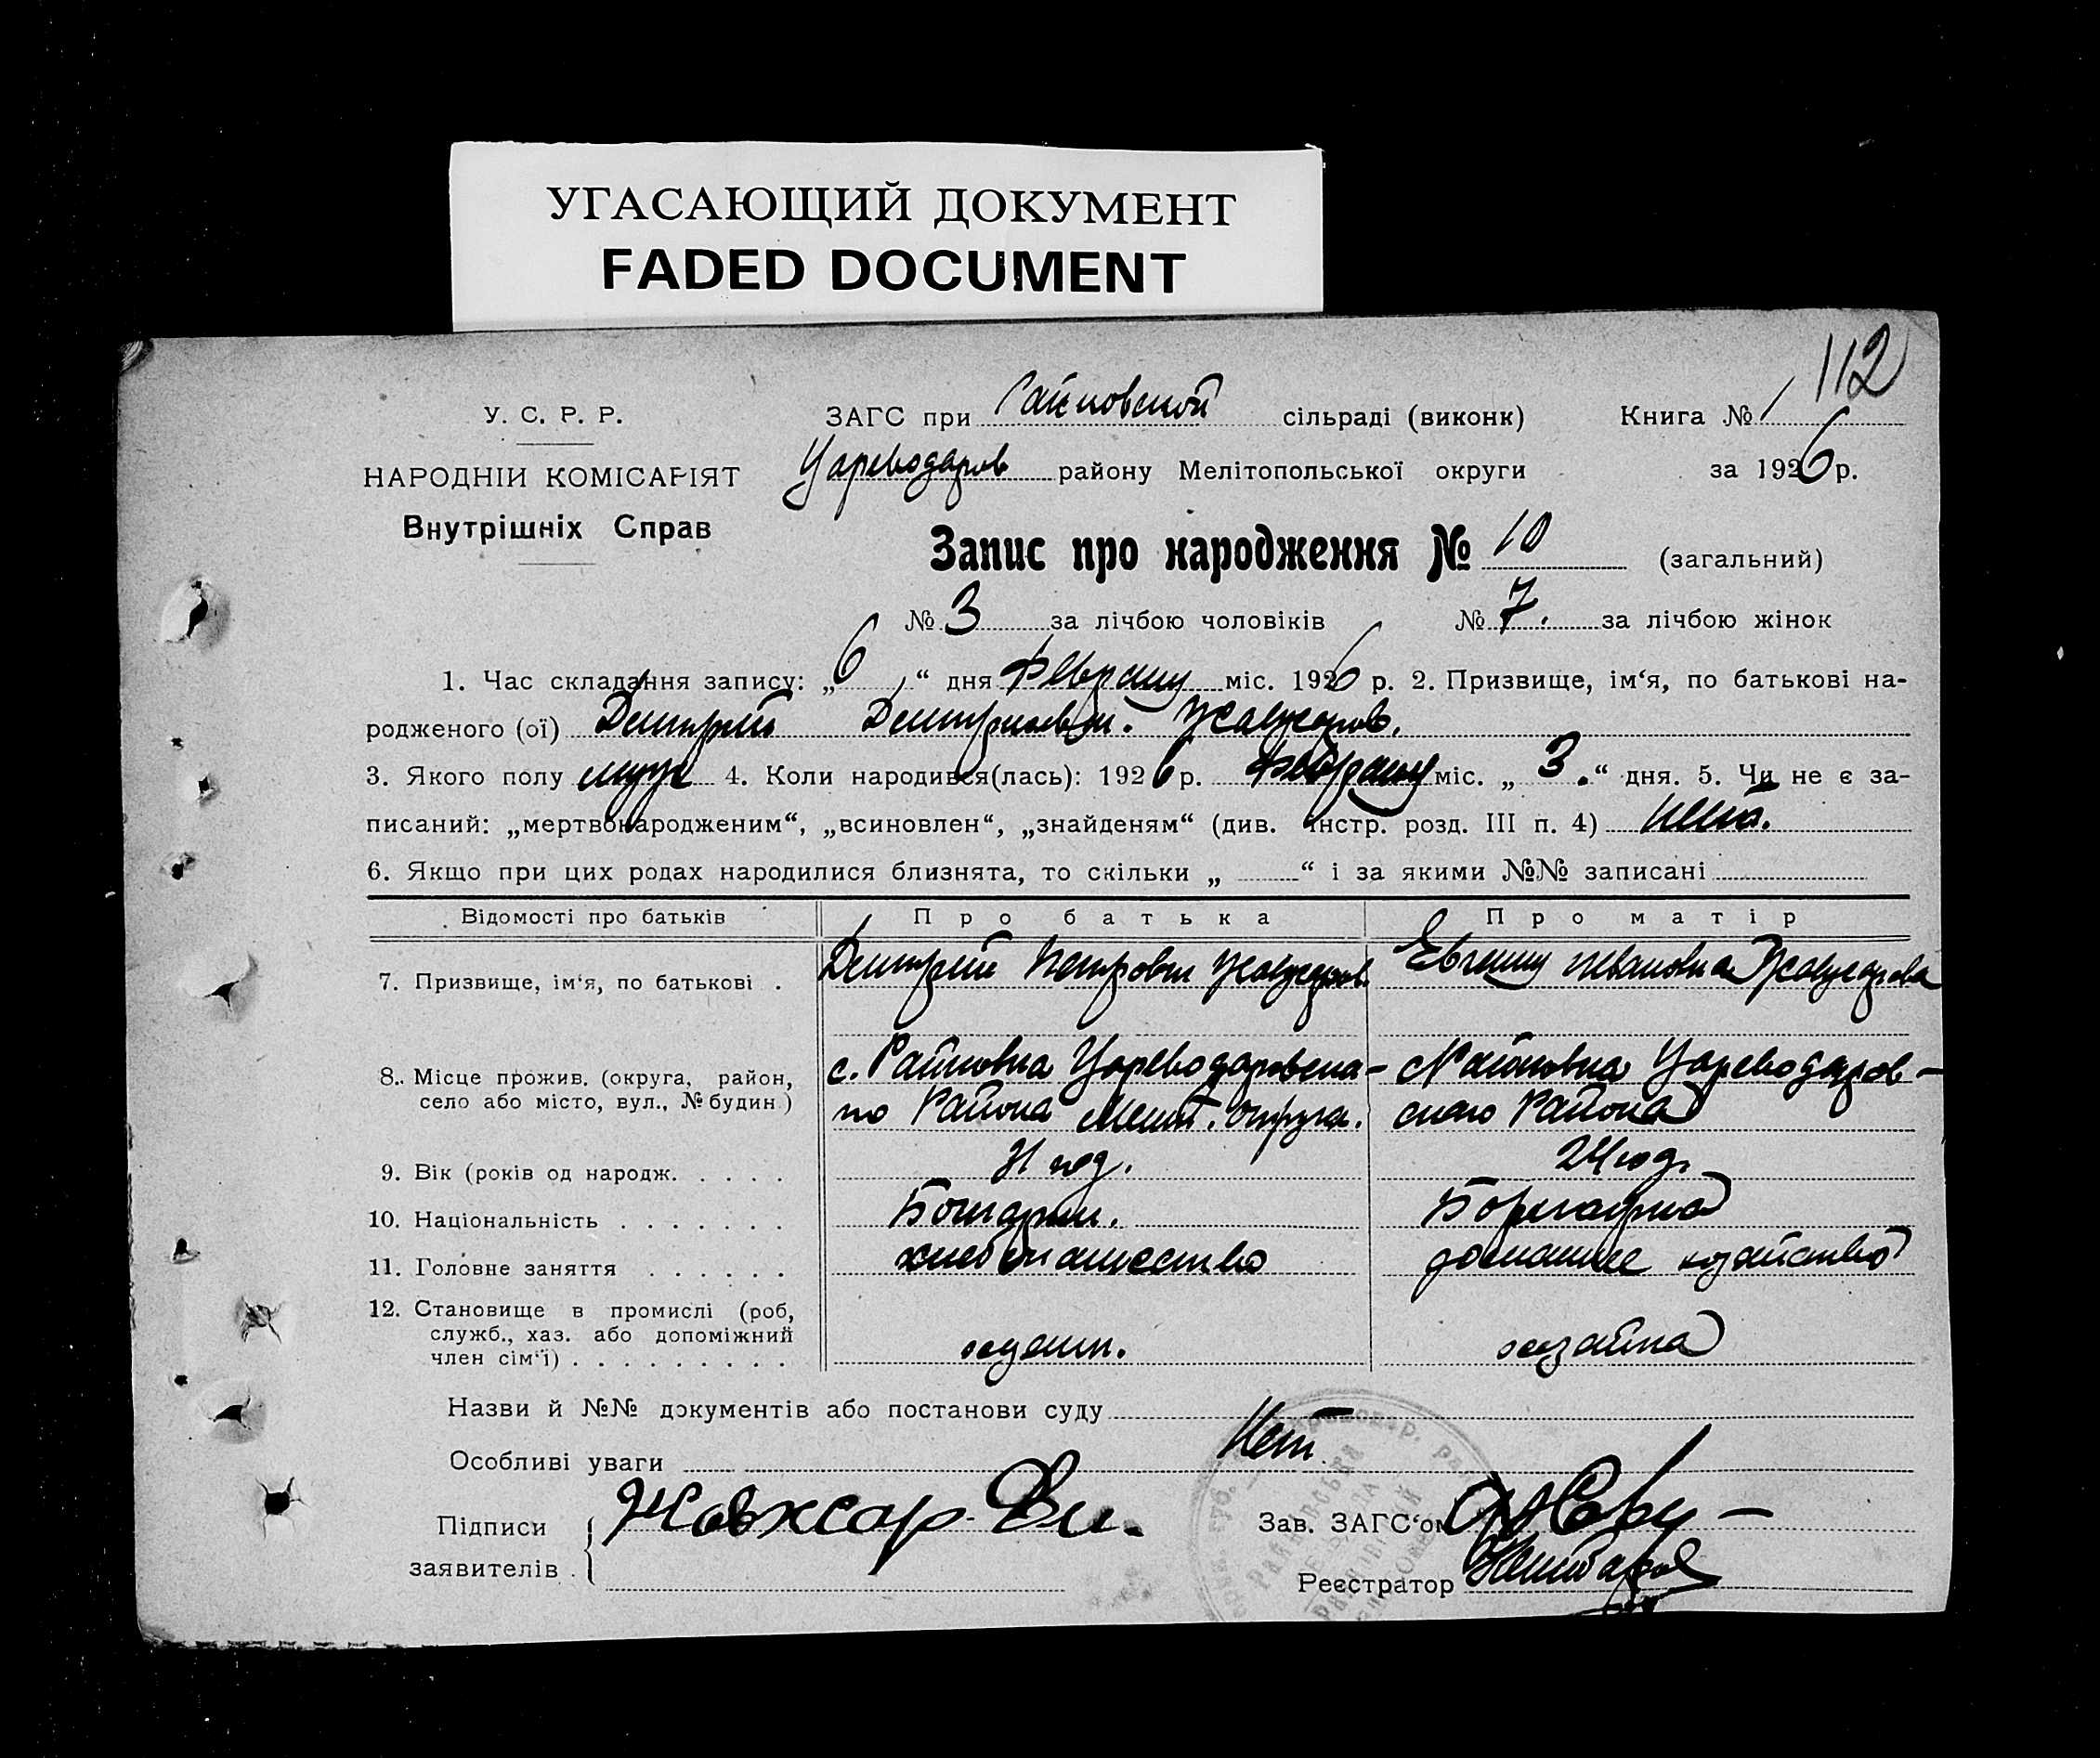 УГАСАЮЩИЙ ДОКУМЕНТ
FADED DOCUMENT
112
У. С. Р. Р.
ЗАГС при Райновской сільраді (виконк)
Книга № 1
НАРОДНІЙ КОМІСАРІЯТ
Цареводаров району Мелітопольської округи
за 1926 р.
Внутрішніх Справ
Запис про народження № 10 (загальний)
№ 3 за лічбою чоловіків № 7. за лічбою жінок
1. Час складання запису: „6“ дня Февраля міс. 1926 р. 2. Призвище, ім‘я, по батькові на-
родженого (ої) Дмитрий Дмитриевич.
3. Якого полу муж 4. Коли народився(лась): 1926 р. Февраля міс. „3.“ дня. 5. Чи не є за-
писаний: „мертвонародженим“, „всиновлен“, „знайденям“ (див. інстр. розд. III п. 4)
6. Якщо при цих родах народилися близнята, то скільки „ “ і за якими №№ записані
Відомості про батьків
Про батька
Про матір
7. Призвище, ім‘я, по батькові .
Дмитрий Петрович
Евгения Ивановна
8. Місце прожив. (округа, район,
село або місто, вул., № будин.)
с. Райновка Цареводаровска-
го Района Мелит. округа.
с Райновка Цареводаров-
ского Района
9. Вік (років од народж. . . . .
31 год.
24 год.
10. Національність . . . . . . .
Болгарин.
Болгарка
11. Головне заняття . . . . . .
хлебопашество
домашнее хозяйство
12. Становище в промислі (роб,
служб., хаз. або допоміжний
член сім‘ї) . . . . . . . . .
хозяин.
хозяйка
Назви й №№ документів або постанови суду
Особливі уваги Нет
Підписи
заявителів .
Зав. ЗАГС‘ом
Реєстратор